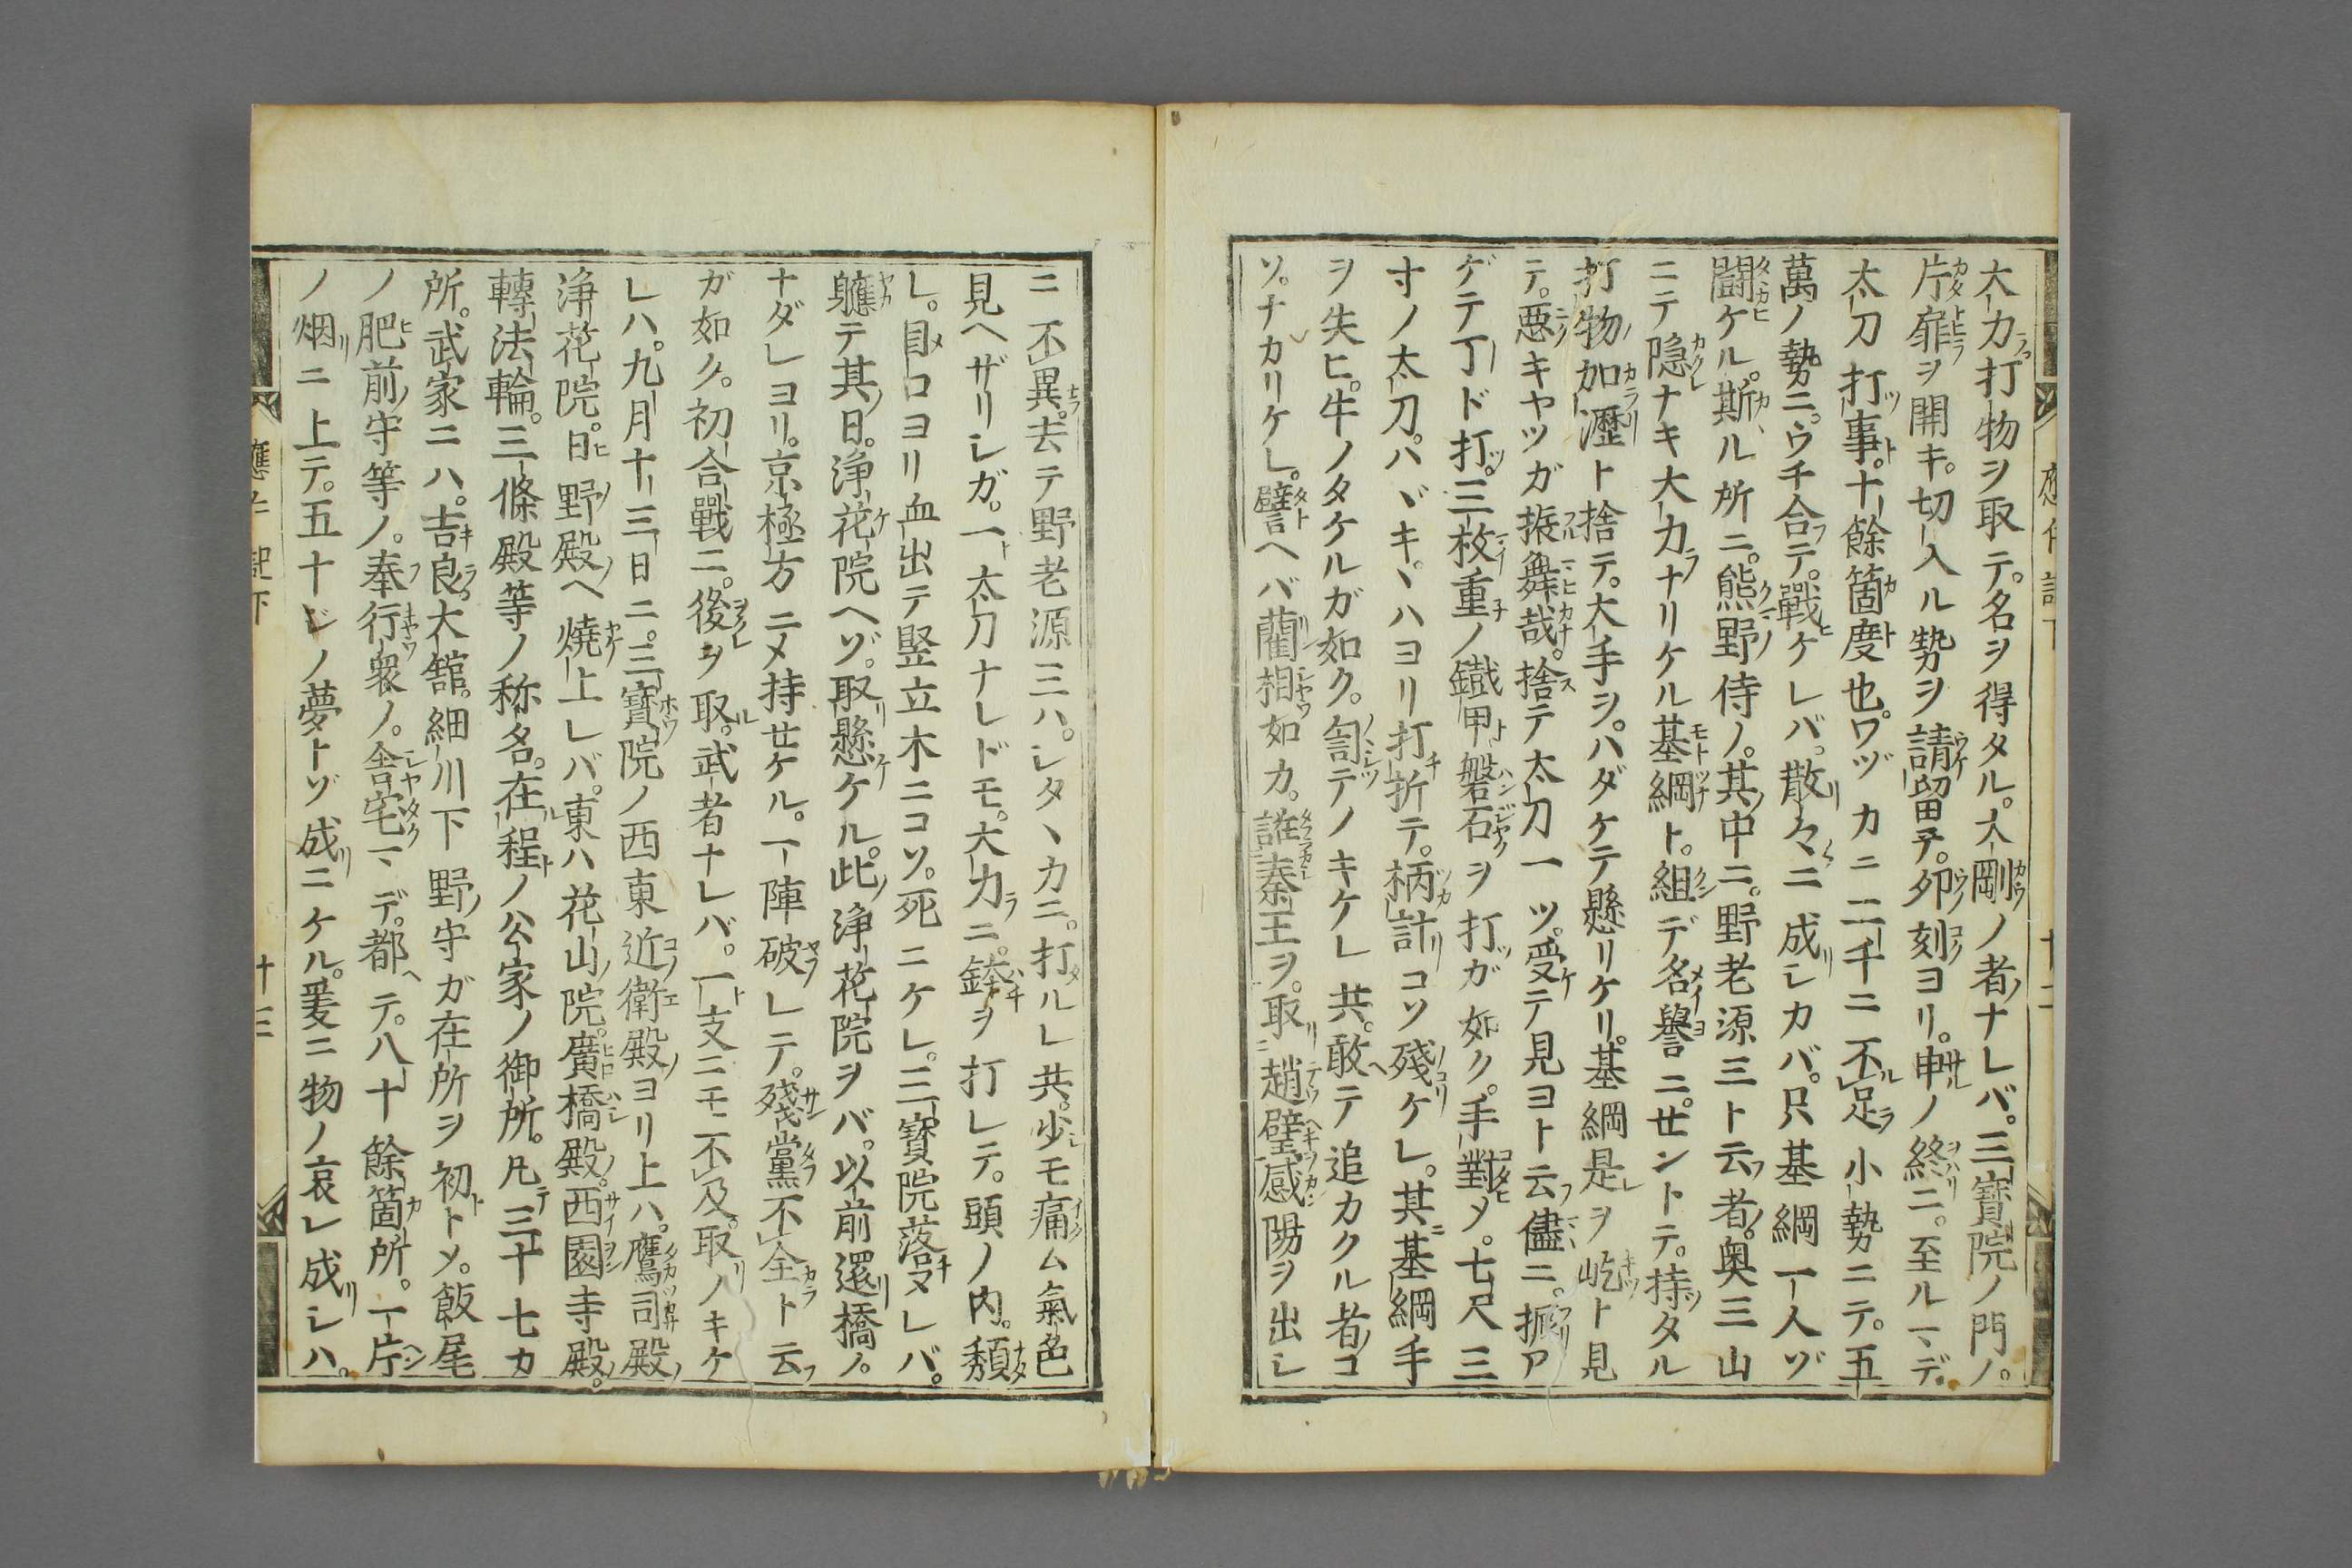 大力打物ヲ取テ。名ヲ得タル。大剛ノ者ナレバ。三寳院ノ門ノ。
片扉ヲ開キ。切入ル勢ヲ請留テ。夘刻ヨリ。申ノ終ニ。至ルマデ。
太刀打事。十餘箇度也。ワヅカニ二千ニ不足小勢ニテ。五
萬ノ勢ニ。ウチ合テ。戰ケレバ。散々ニ成シカバ。只基綱一人ゾ
闘ケル。斯ル所ニ。熊野侍ノ。其中ニ。野老源三ト云者。奥三山
ニテ隠ナキ大力ナリケル基綱ト。組デ名譽ニ。せントテ。持タル
打物加瀝ト捨テ。大手ヲ。ハダケテ懸リケリ。基綱是ヲ屹ト見
テ。悪キヤツガ振舞哉。捨テ太刀一ツ。受テ見ヨト云儘ニ。振ア
ゲテ丁ド打。三枚重ノ鐵甲磐石ヲ打ガ如ク。手對メ。七尺三
寸ノ太刀。ハヾキヽハヨリ打折テ。柄計コソ殘ケレ。其基綱手
ヲ失ヒ。牛ノタケルガ如ク。訇テノキケレ共。敢テ追カクル者コ
ソ。ナカリケレ。譬ヘバ藺相如カ。誑秦王ヲ。取趙璧咸陽ヲ出シ
應仁記下
十二
ニ不異。去テ野老源三ハ。シタヽカニ。打ルレ共。少モ痛ム氣色
見ヘザリシガ。一太刀ナレドモ。大力ニ。鉢ヲ打レテ。頭ノ内。頽
レ。目口ヨリ血出テ竪立木ニコソ。死ニケレ。三寳院落ヌレバ。
軈テ其日。浄花院ヘゾ。取懸ケル。此浄花院ヲバ。以前還橋ノ。
ナダレヨリ。京極方ニメ持せケル。一陣破レテ。殘黨不全ト云
ガ如ク。初合戰ニ。後ヲ取。武者ナレバ。一支ニモ不及。取ノキケ
レハ。九月十三日ニ。三寳院ノ西東近衛殿ヨリ上ハ。鷹司殿
浄花院。日野殿ヘ燒上レバ。東ハ花山院。廣橋殿。西園寺殿。
轉法輪。三條殿等ノ称名。在程ノ公家ノ御所。凡三十七カ
所。武家ニハ。吉良大舘。細川下野守ガ在所ヲ初トメ。飯尾
ノ肥前守等ノ。奉行衆ノ。舎宅マデ。都テ。八十餘箇所。一片
ノ烟ニ上テ。五十ジノ夢トゾ成ニケル。爰ニ物ノ哀レ成シハ。
應仁記下
十三